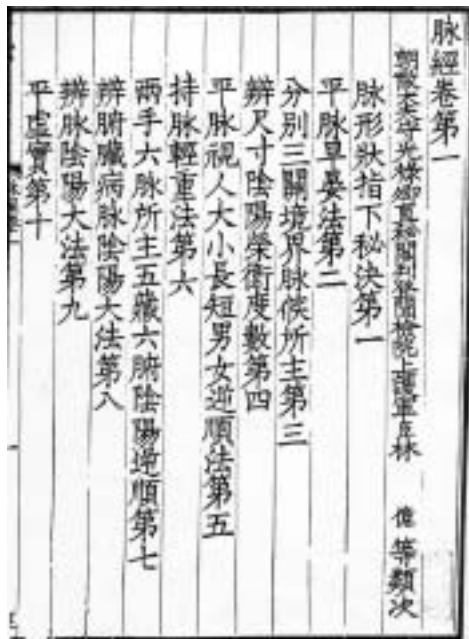 脉經卷第一
朝散大夫守光祿卿直祕閣判登聞檢院上護軍臣林　億等類次
脉形狀指下秘決第一
平脉早晏法第二
分別三關境界脉候所主第三
辨尺寸陰陽榮衛度數第四
平脉視人大小長短男女逆順法第五
持脉輕重法第六
兩手六脉所主五藏六腑陰陽逆順第七
辨腑臟病脉陰陽大法第八
辨脉陰陽大法第九
平虛實第十